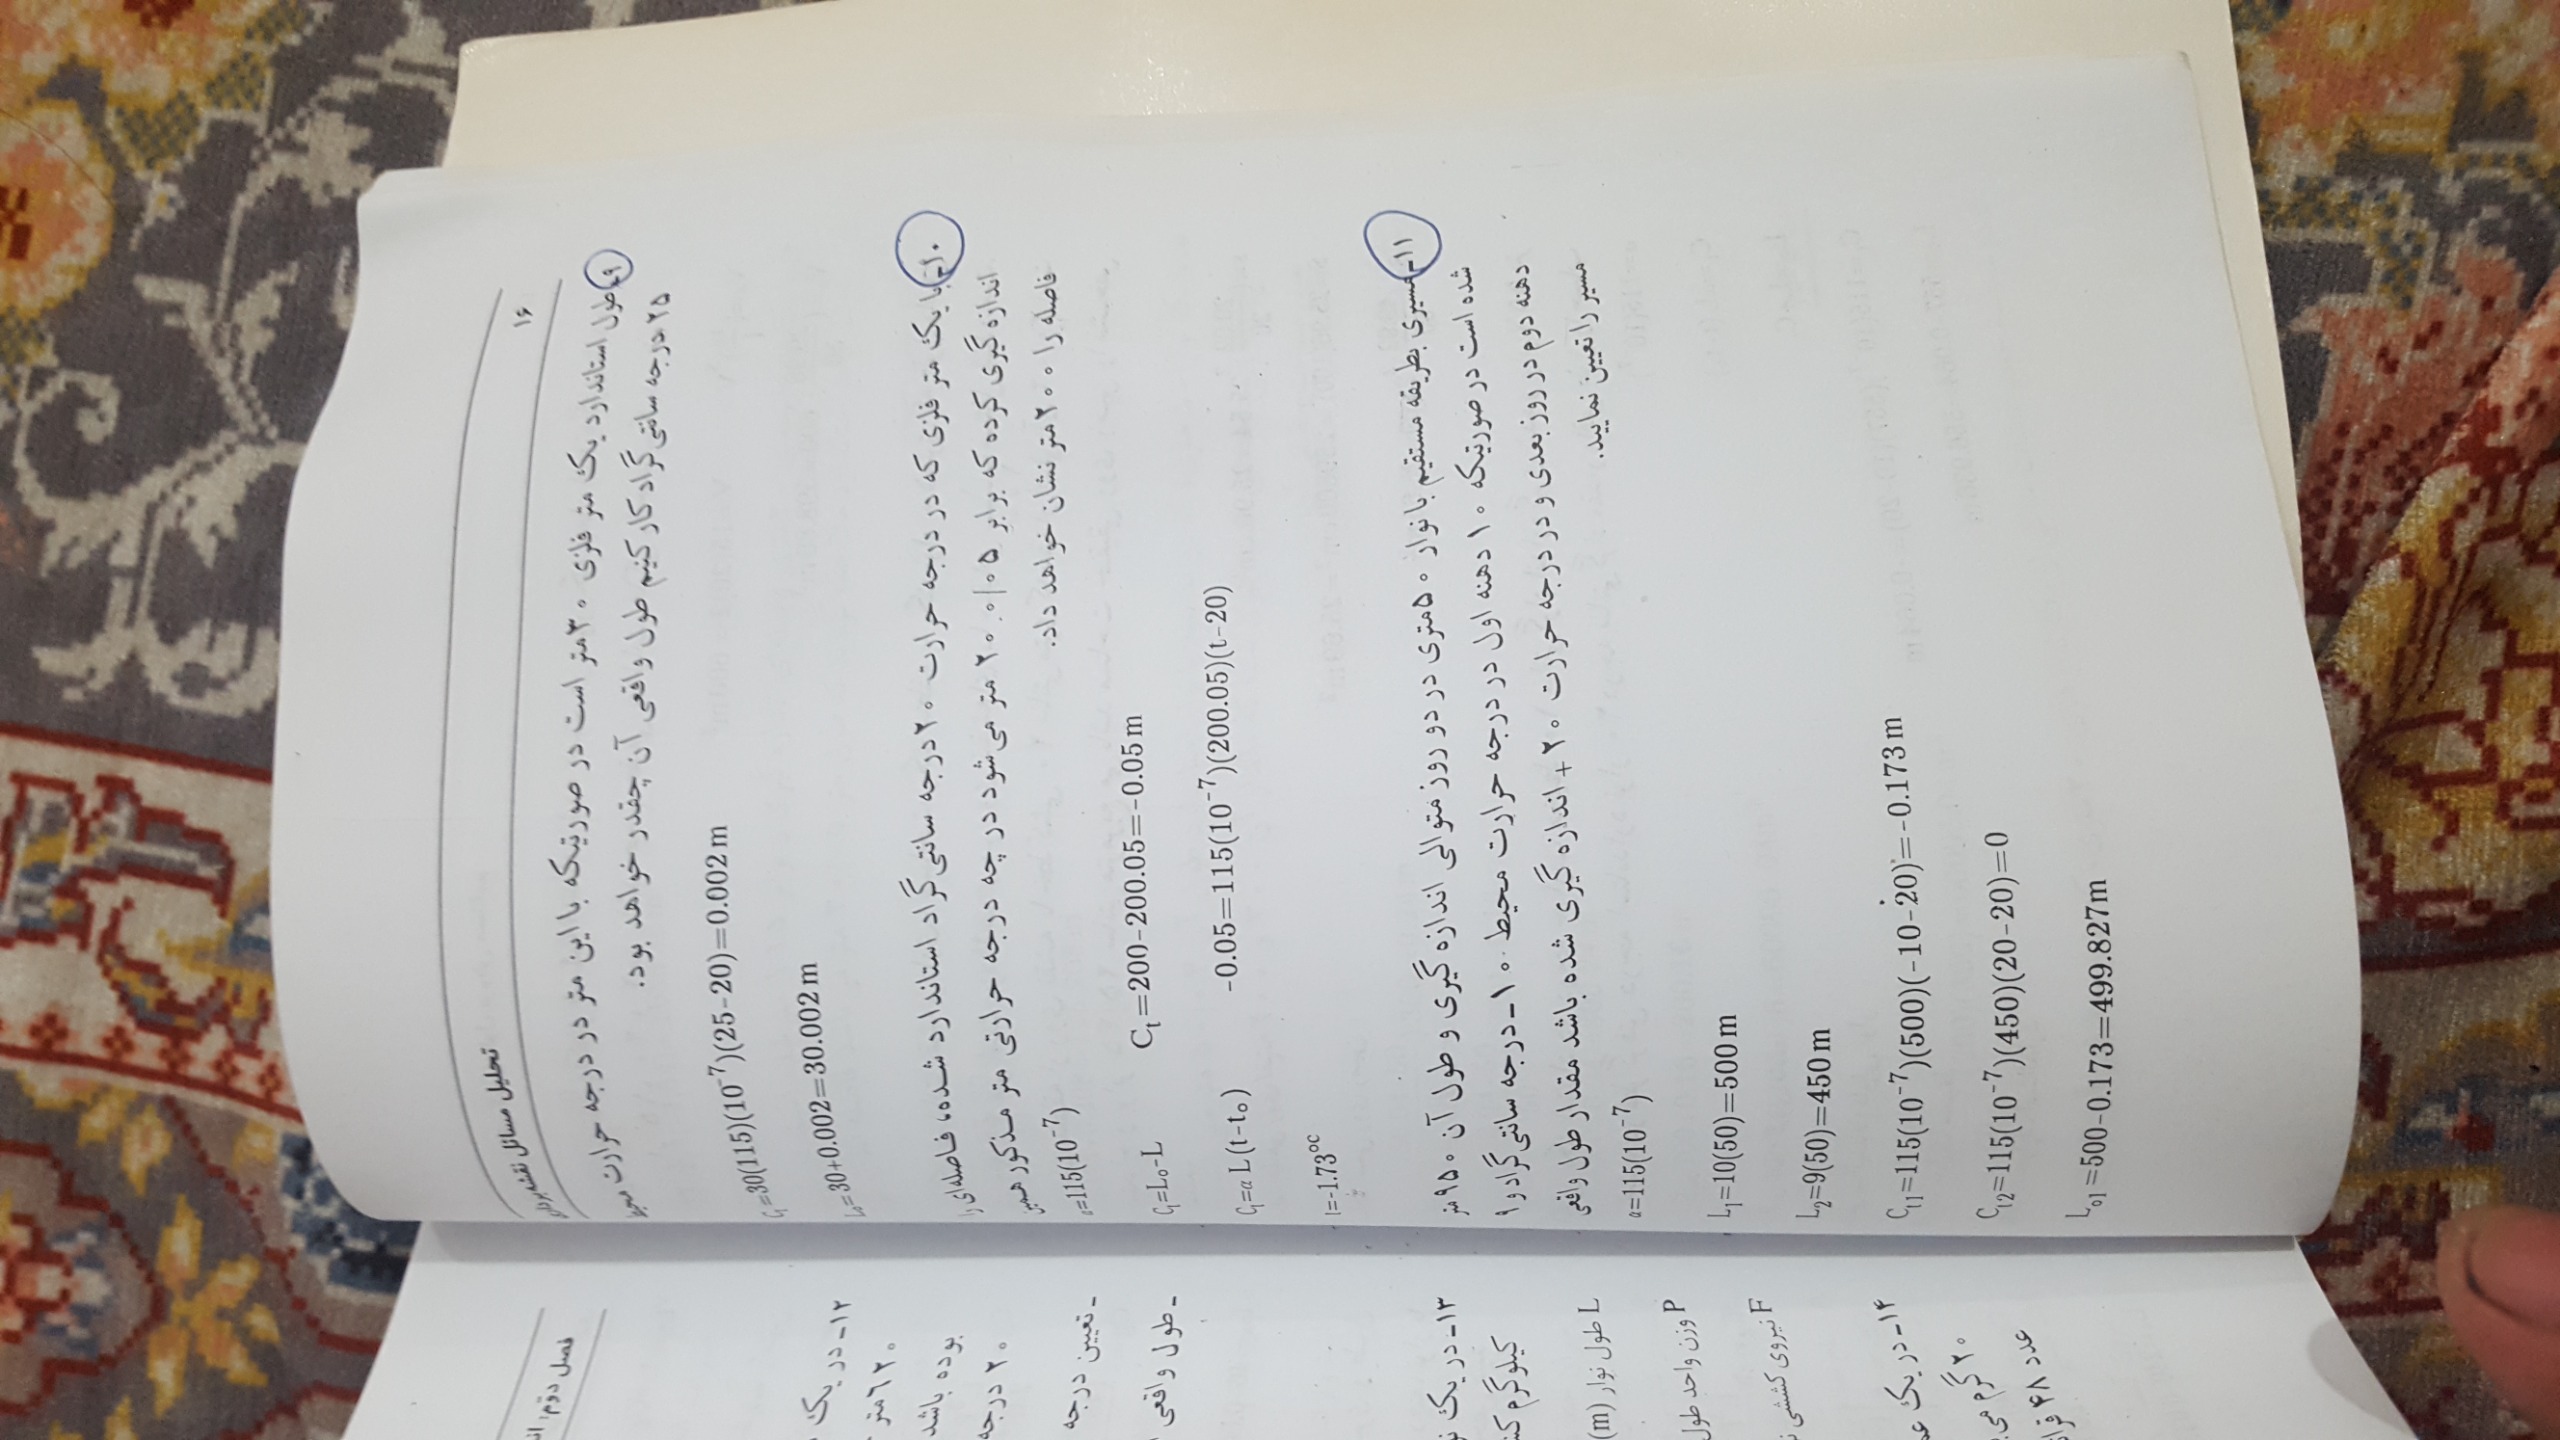 تحلیل مسائل نقشه‌برداری
۱۶
۹- طول استاندارد یک متر فلزی ۳۰ متر است در صورتیکه با این متر در درجه حرارت محیط
۲۵ درجه سانتی‌گراد کار کنیم طول واقعی آن چقدر خواهد بود.
Cₜ=30(115)(10⁻⁷)(25-20)=0.002 m
L₀=30+0.002=30.002 m
۱۰- با یک متر فلزی که در درجه حرارت ۲۰ درجه سانتی‌گراد استاندارد شده، فاصله‌ای را
اندازه‌گیری کرده که برابر ۲۰۰/۰۵ متر می‌شود در چه درجه حرارتی متر مذکور همین
فاصله را ۲۰۰ متر نشان خواهد داد.
α=115(10⁻⁷)
Cₜ=L₀-L Cₜ=200-200.05=-0.05 m
Cₜ=α L(t-t₀) -0.05=115(10⁻⁷)(200.05)(t-20)
t=-1.73°c
۱۱- مسیری بطریقه مستقیم با نوار ۵۰ متری در دو روز متوالی اندازه‌گیری و طول آن ۹۵۰ متر
شده است در صورتیکه ۱۰ دهنه اول در درجه حرارت محیط ۱۰- درجه سانتی‌گراد و ۹
دهنه دوم در روز بعدی و در درجه حرارت ۲۰+ اندازه‌گیری شده باشد مقدار طول واقعی
مسیر را تعیین نمایید.
α=115(10⁻⁷)
L₁=10(50)=500 m
L₂=9(50)=450 m
Cₜ₁=115(10⁻⁷)(500)(-10-20)=-0.173 m
Cₜ₂=115(10⁻⁷)(450)(20-20)=0
L₀₁=500-0.173=499.827m
فصل دوم:
۱۲- در یک
۲۰ متر
بوده باشد
۲۰ درجه
- تعیین درجه
- طول واقعی
۱۳- در یک
کیلوگرم
L طول نوار (m)
P وزن واحد طول
F نیروی کششی
۱۴- در یک
۲۰ گرم
عدد ۴۸